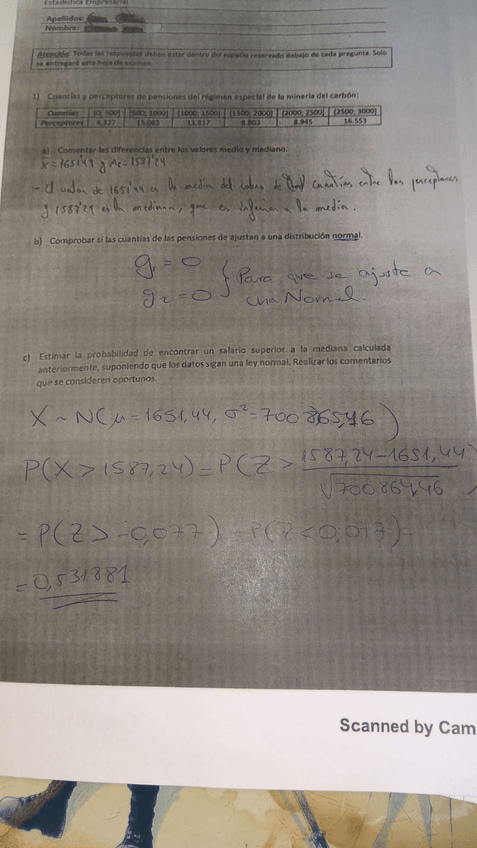 Estadística Empresarial
Apellidos:
Nombre:
Atención: Todas las respuestas deben estar dentro del espacio reservado debajo de cada pregunta. Solo
se entregará esta hoja de examen.
1) Cuantías y perceptores de pensiones del régimen especial de la minería del carbón:
Cuantías [0; 500] (500; 1000] (1000; 1500] (1500; 2000] (2000; 2500] (2500; 3000]
Perceptores 4.327 13.817 8.803 8.945 16.553
a) Comentar las diferencias entre los valores medio y mediano.
x̄ = 1651'44 y Me = 1587'24
- El valor de 1651'44 es la media del cobro de cuantías entre los perceptores
y 1587'24 es la mediana, que es inferior a la media.
b) Comprobar si las cuantías de las pensiones de ajustan a una distribución normal.
g₁ = 0
g₂ = 0 } Para que se ajuste a
una Normal.
c) Estimar la probabilidad de encontrar un salario superior a la mediana calculada
anteriormente, suponiendo que los datos sigan una ley normal. Realizar los comentarios
que se consideren oportunos.
X ~ N(μ = 1651,44, σ² = 700 865,46)
P(X > 1587,24) = P(Z > 1587,24 - 1651,44
√700864,46
= P(Z > -0,077) = P(Z < 0,077) =
= 0,531881
Scanned by Cam